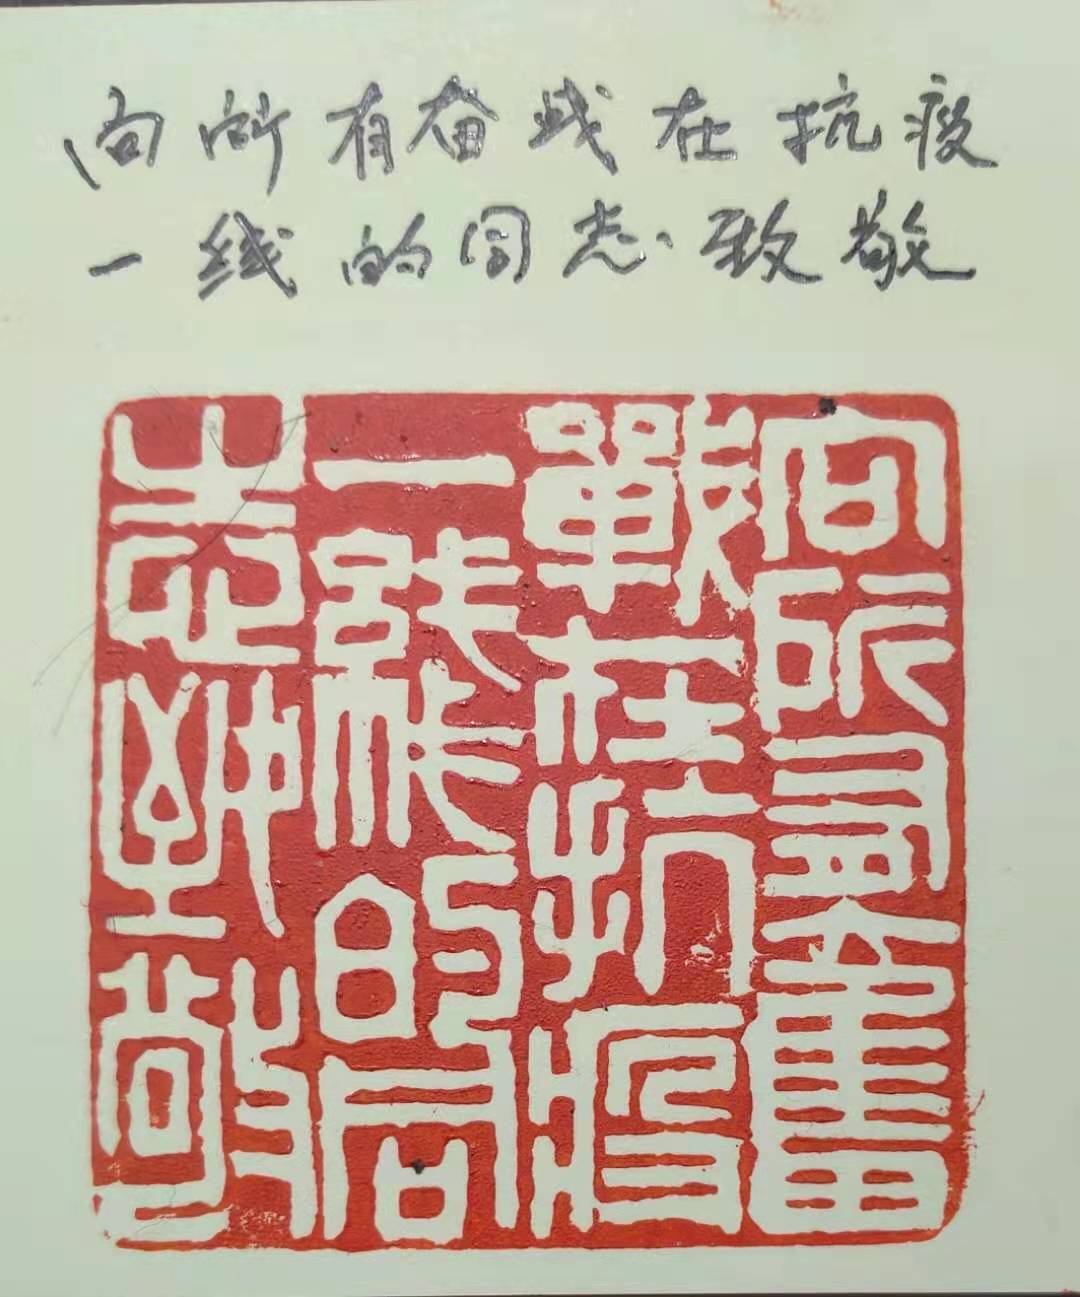 向所有奋战在抗疫
一线的同志致敬
向所有奮
戰在抗疫
一綫的同
志致敬